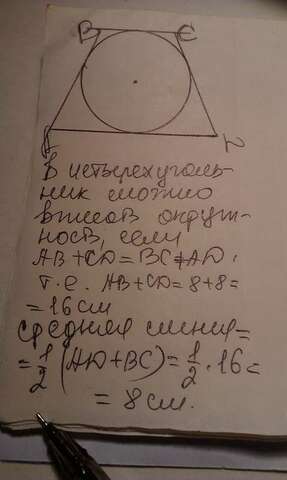 B C
A D
В четырехуголь-
ник можно
вписать окруж-
ность, если
AB+CD=BC+AD.
т.е. AB+CD=8+8=
=16см
средняя линия=
=1/2(AD+BC)=1/2·16=
=8см.